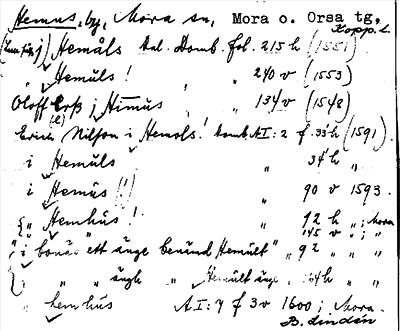 Hemus, by, Mora sn, Mora o. Orsa tg,
Kopp. L.
Hemåls Dal. Domb. fol. 215 h (1551)
" Hemuls! " 240 v (1553)
Oloff i Himus " 134 v (1548)
Erich Nilson i Hemols! Domb. A I: 2 f. 33 h (1591)
i Hemuls " 34 h "
i Hemus (!) " 90 v 1593.
" Hemhus! " 12 h "; Mora
" 145 v "; "
" i bonäs ett änge benämd Hemult " " 92 " "
" " ängh " Hemult änge " 164 h "
" hemhus A I: 4 f 3 v 1600; Mora.
B. Lindén